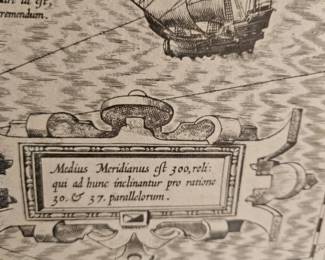 est,
remendum.
Medius Meridianus est 300, reli:
qui ad hunc inclinantur pro ratione
30. & 37. parallelorum.